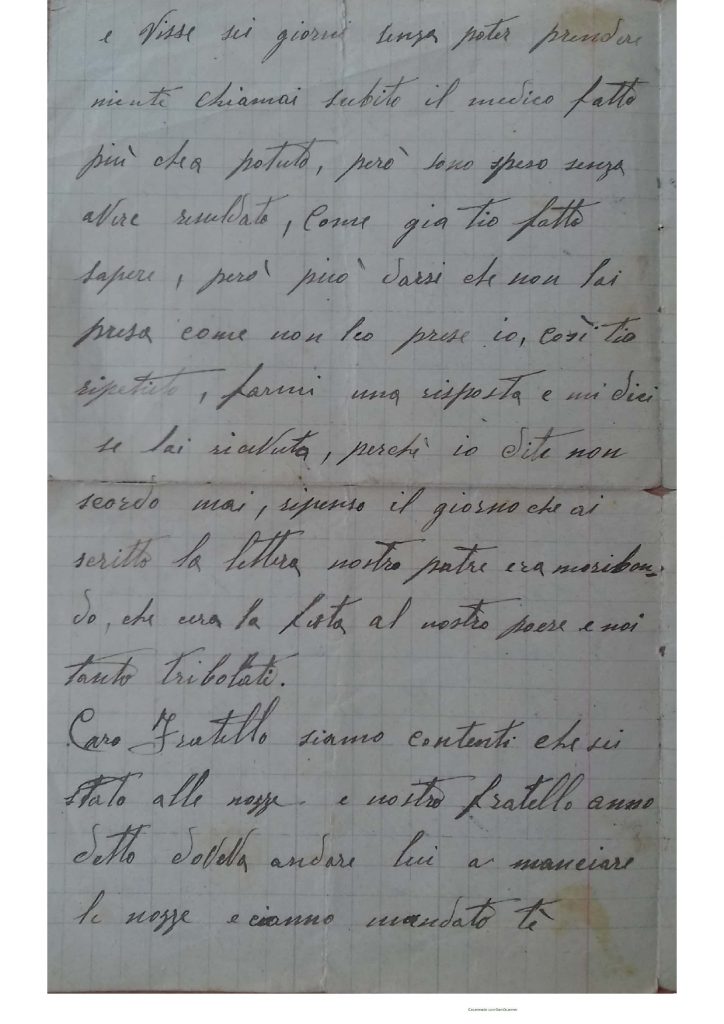 e Visse sei giorni senza poter prendere
niente chiamai subito il medico fatto
più che a potuto, però sono speso senza
avere risuldato, Come gia tio fatto
sapere, però può darsi che non lai
presa come non leo prese io, così tio
ripetuto, farmi una risposta e mi dici
se lai ricevuta, perchè io dite non
scordo mai, ripenso il giorno che ai
scritto la lettera nostro patre era moribon-
do, che cera la festa al nostro paese e noi
tanto tribolati.
Caro Fratello siamo contenti che sei
stato alle nozze. e nostro fratello anno
detto doveva andare lui a manciare
le nozze e cianno mandato tè